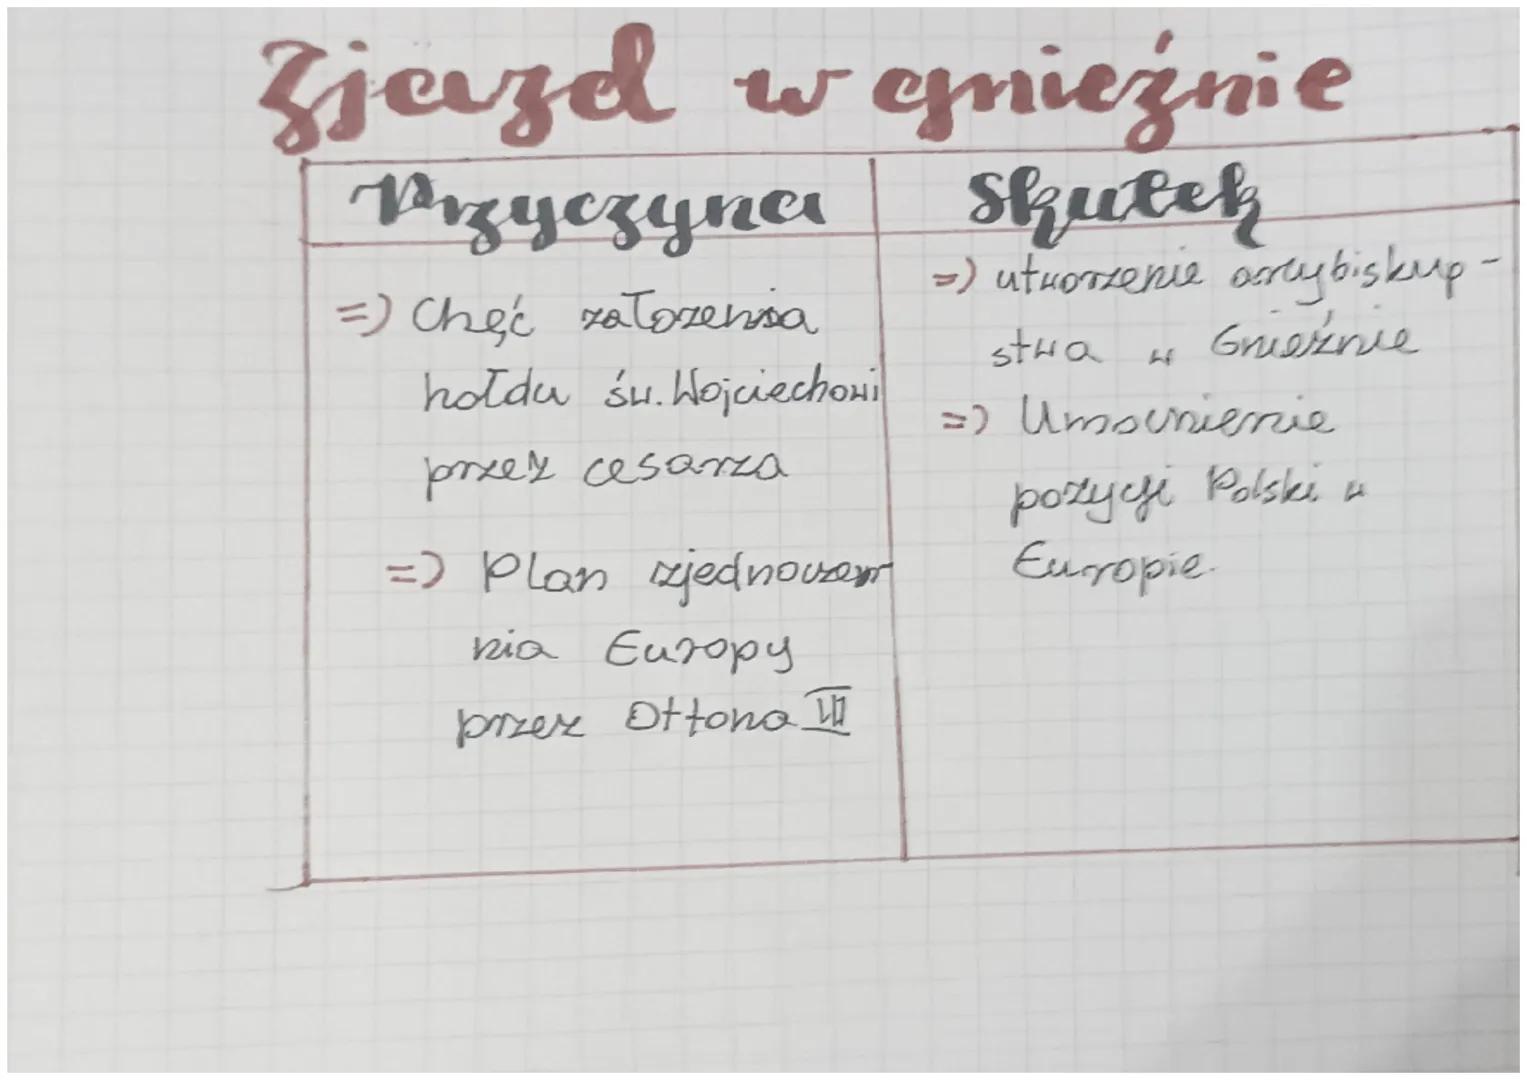 Zjazd w gnieźnie
Przyczyna
=> Chęć założenia
hołdu św. Wojciechowi
przez cesarza
=> Plan zjednoczen
nia Europy
przez Ottona III
Skutek
=> utworzenie arcybiskup-
stwa w Gnieźnie
=> Umocnienie
pozycji Polski w
Europie.